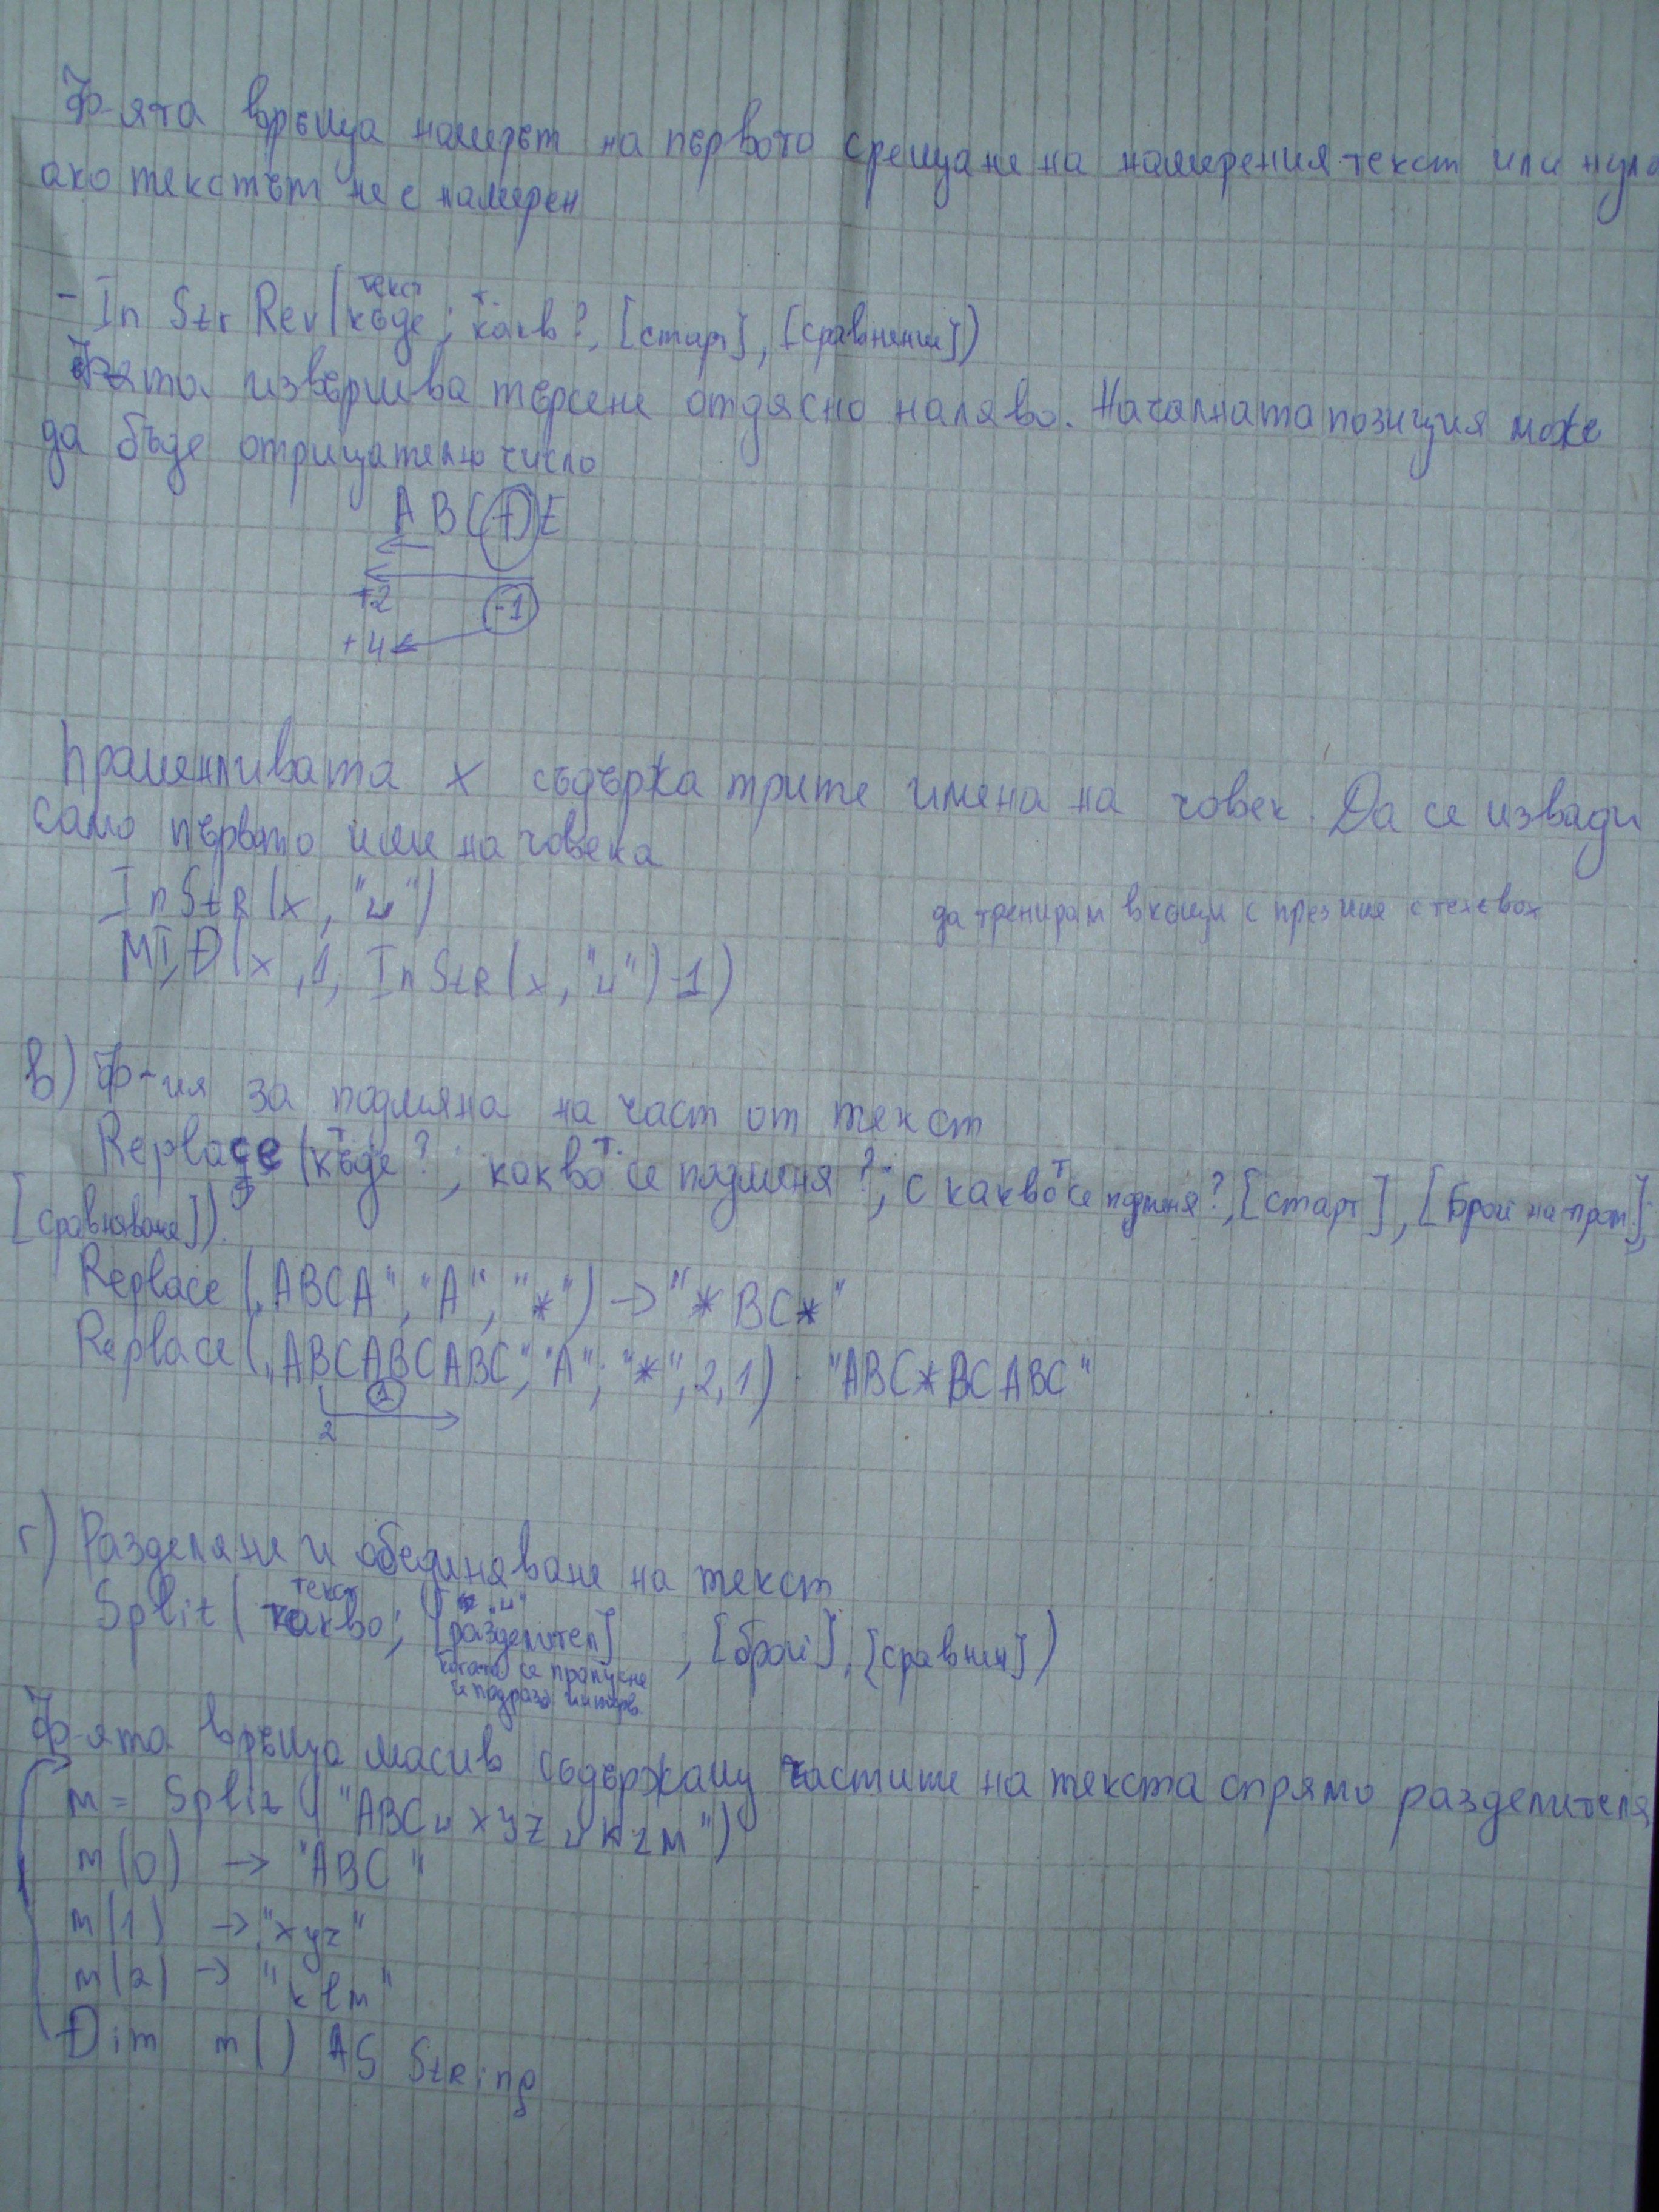 Ф-ята връща номерът на първото срещане на намерения текст или нула
ако текстът не е намерен
- In Str Rev (къде; какв?, [старт], [сравнение])
текст т.
Ф-ята извършва търсене отдясно наляво. Началната позиция може
да бъде отрицателно число
ABCDE
+2 -1
+4
Променливата x съдържа трите имена на човек. Да се извади
само първото име на човека
InStR (x, "␣")
да тренирам вкъщи с
MID (x, 1, InStR (x, "␣") -1)
в) Ф-ия за подмяна на част от текст
Replace (къде?; какво се подменя?; с какво се подменя?, [старт], [брой на пром],
т т. т
[сравняване])
Replace („ABCA", "A", "*") → "*BC*"
Replace („ABCABCABC", "A"; "*", 2, 1) "ABC*BCABC"
1
2
г) Разделяне и обединяване на текст
текст "␣"
Split (какво; [разделител] , [брой], [сравнин])
когато се пропусне
се подразб. интерв.
Ф-ята връща масив съдържащ частите на текста спрямо разделителя
m = Split ("ABC␣xyz␣klm")
m(0) → "ABC"
m(1) → "xyz"
m(2) → "klm"
Dim m() AS StRing